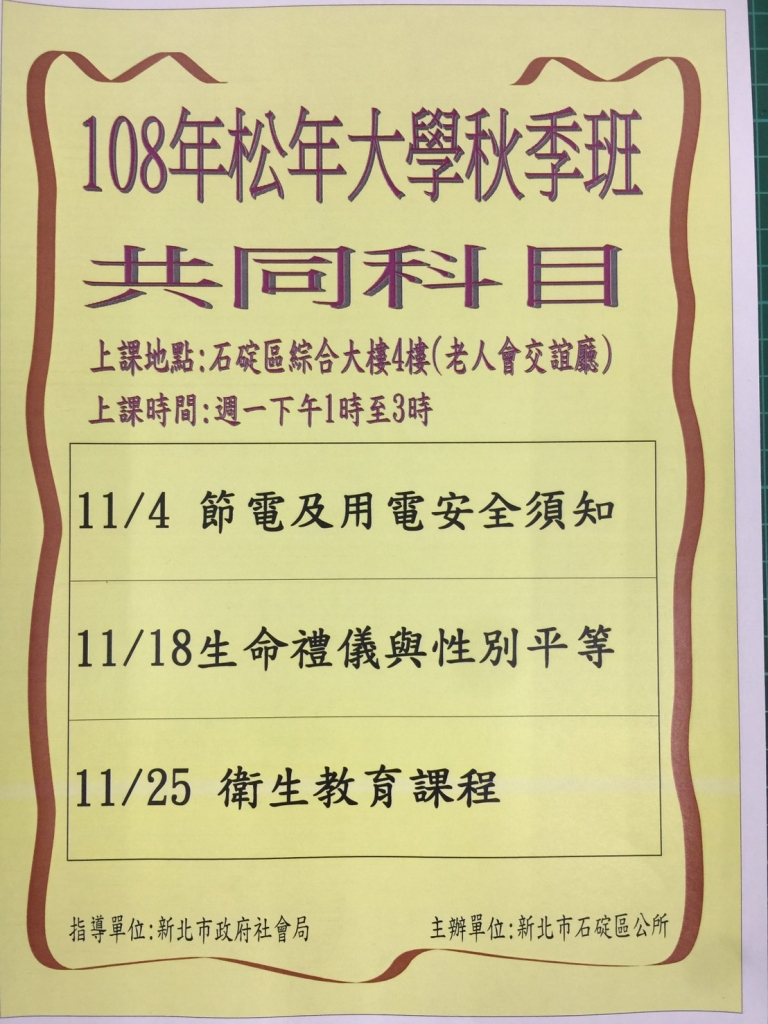 108年松年大學秋季班
共同科目
上課地點:石碇區綜合大樓4樓(老人會交誼廳)
上課時間:週一下午1時至3時
11/4 節電及用電安全須知
11/18生命禮儀與性別平等
11/25 衛生教育課程
指導單位:新北市政府社會局
主辦單位:新北市石碇區公所